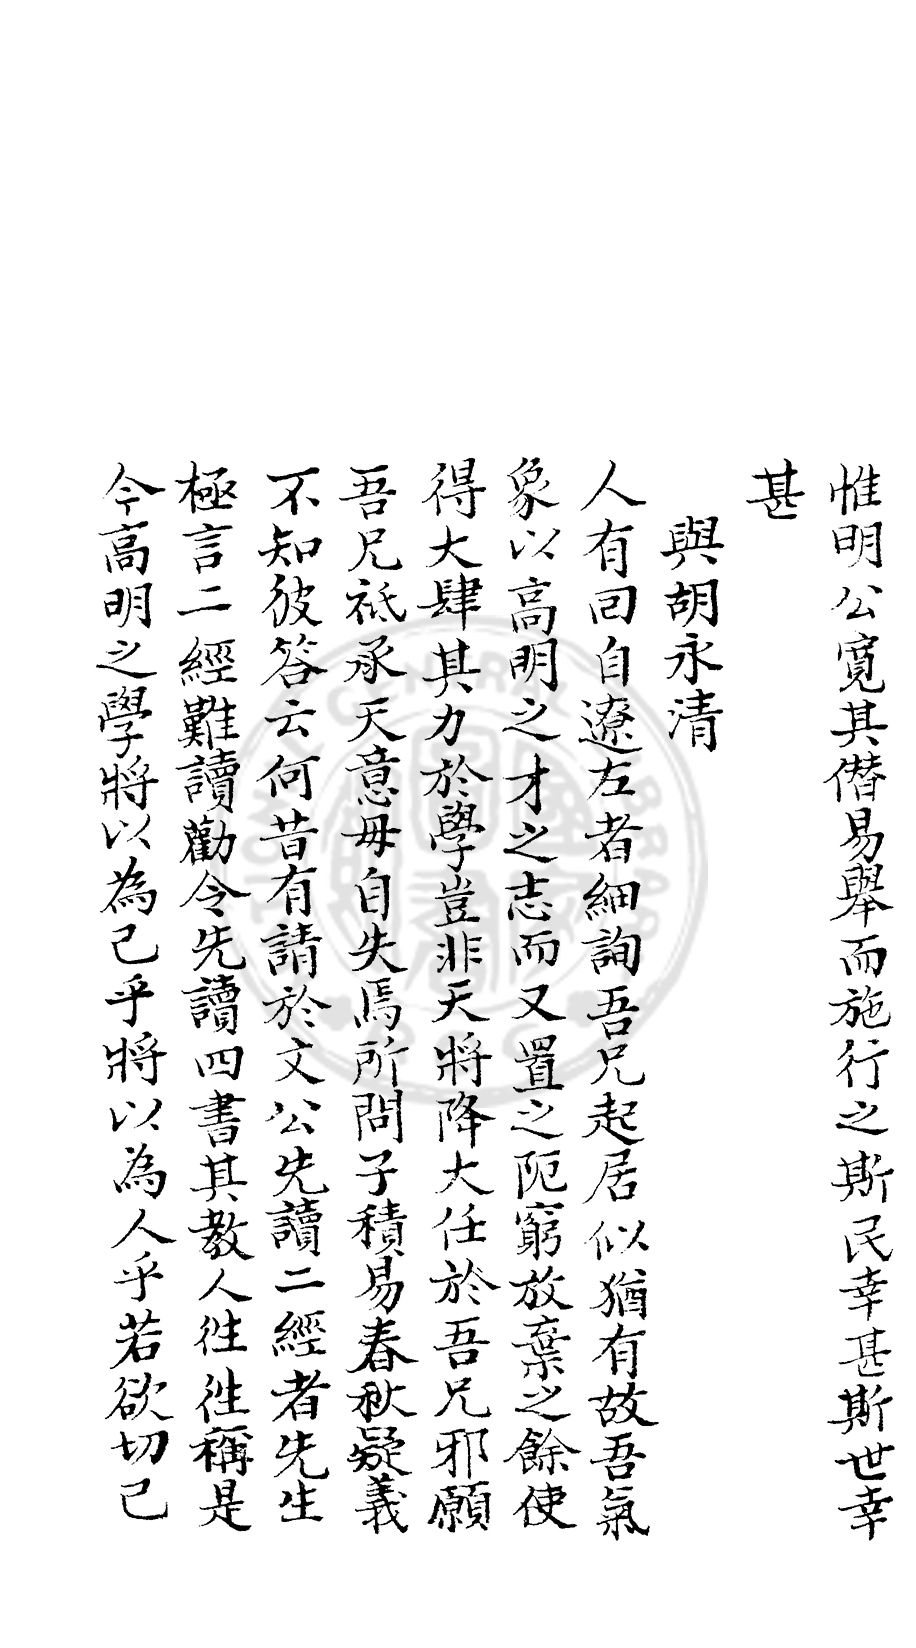 惟明公寬其僭易舉而施行之斯民幸甚斯世幸
甚
與胡永清
人有回自遼左者細詢吾兄起居似猶有故吾氣
象以高明之才之志而又置之阨窮放棄之餘使
得大肆其力於學豈非天將降大任於吾兄邪願
吾兄祗承天意毋自失焉所問子積易春秋疑義
不知彼答云何昔有請於文公先讀二經者先生
極言二經難讀勸令先讀四書其教人徃徃稱是
今高明之學將以為己乎將以為人乎若欲切己